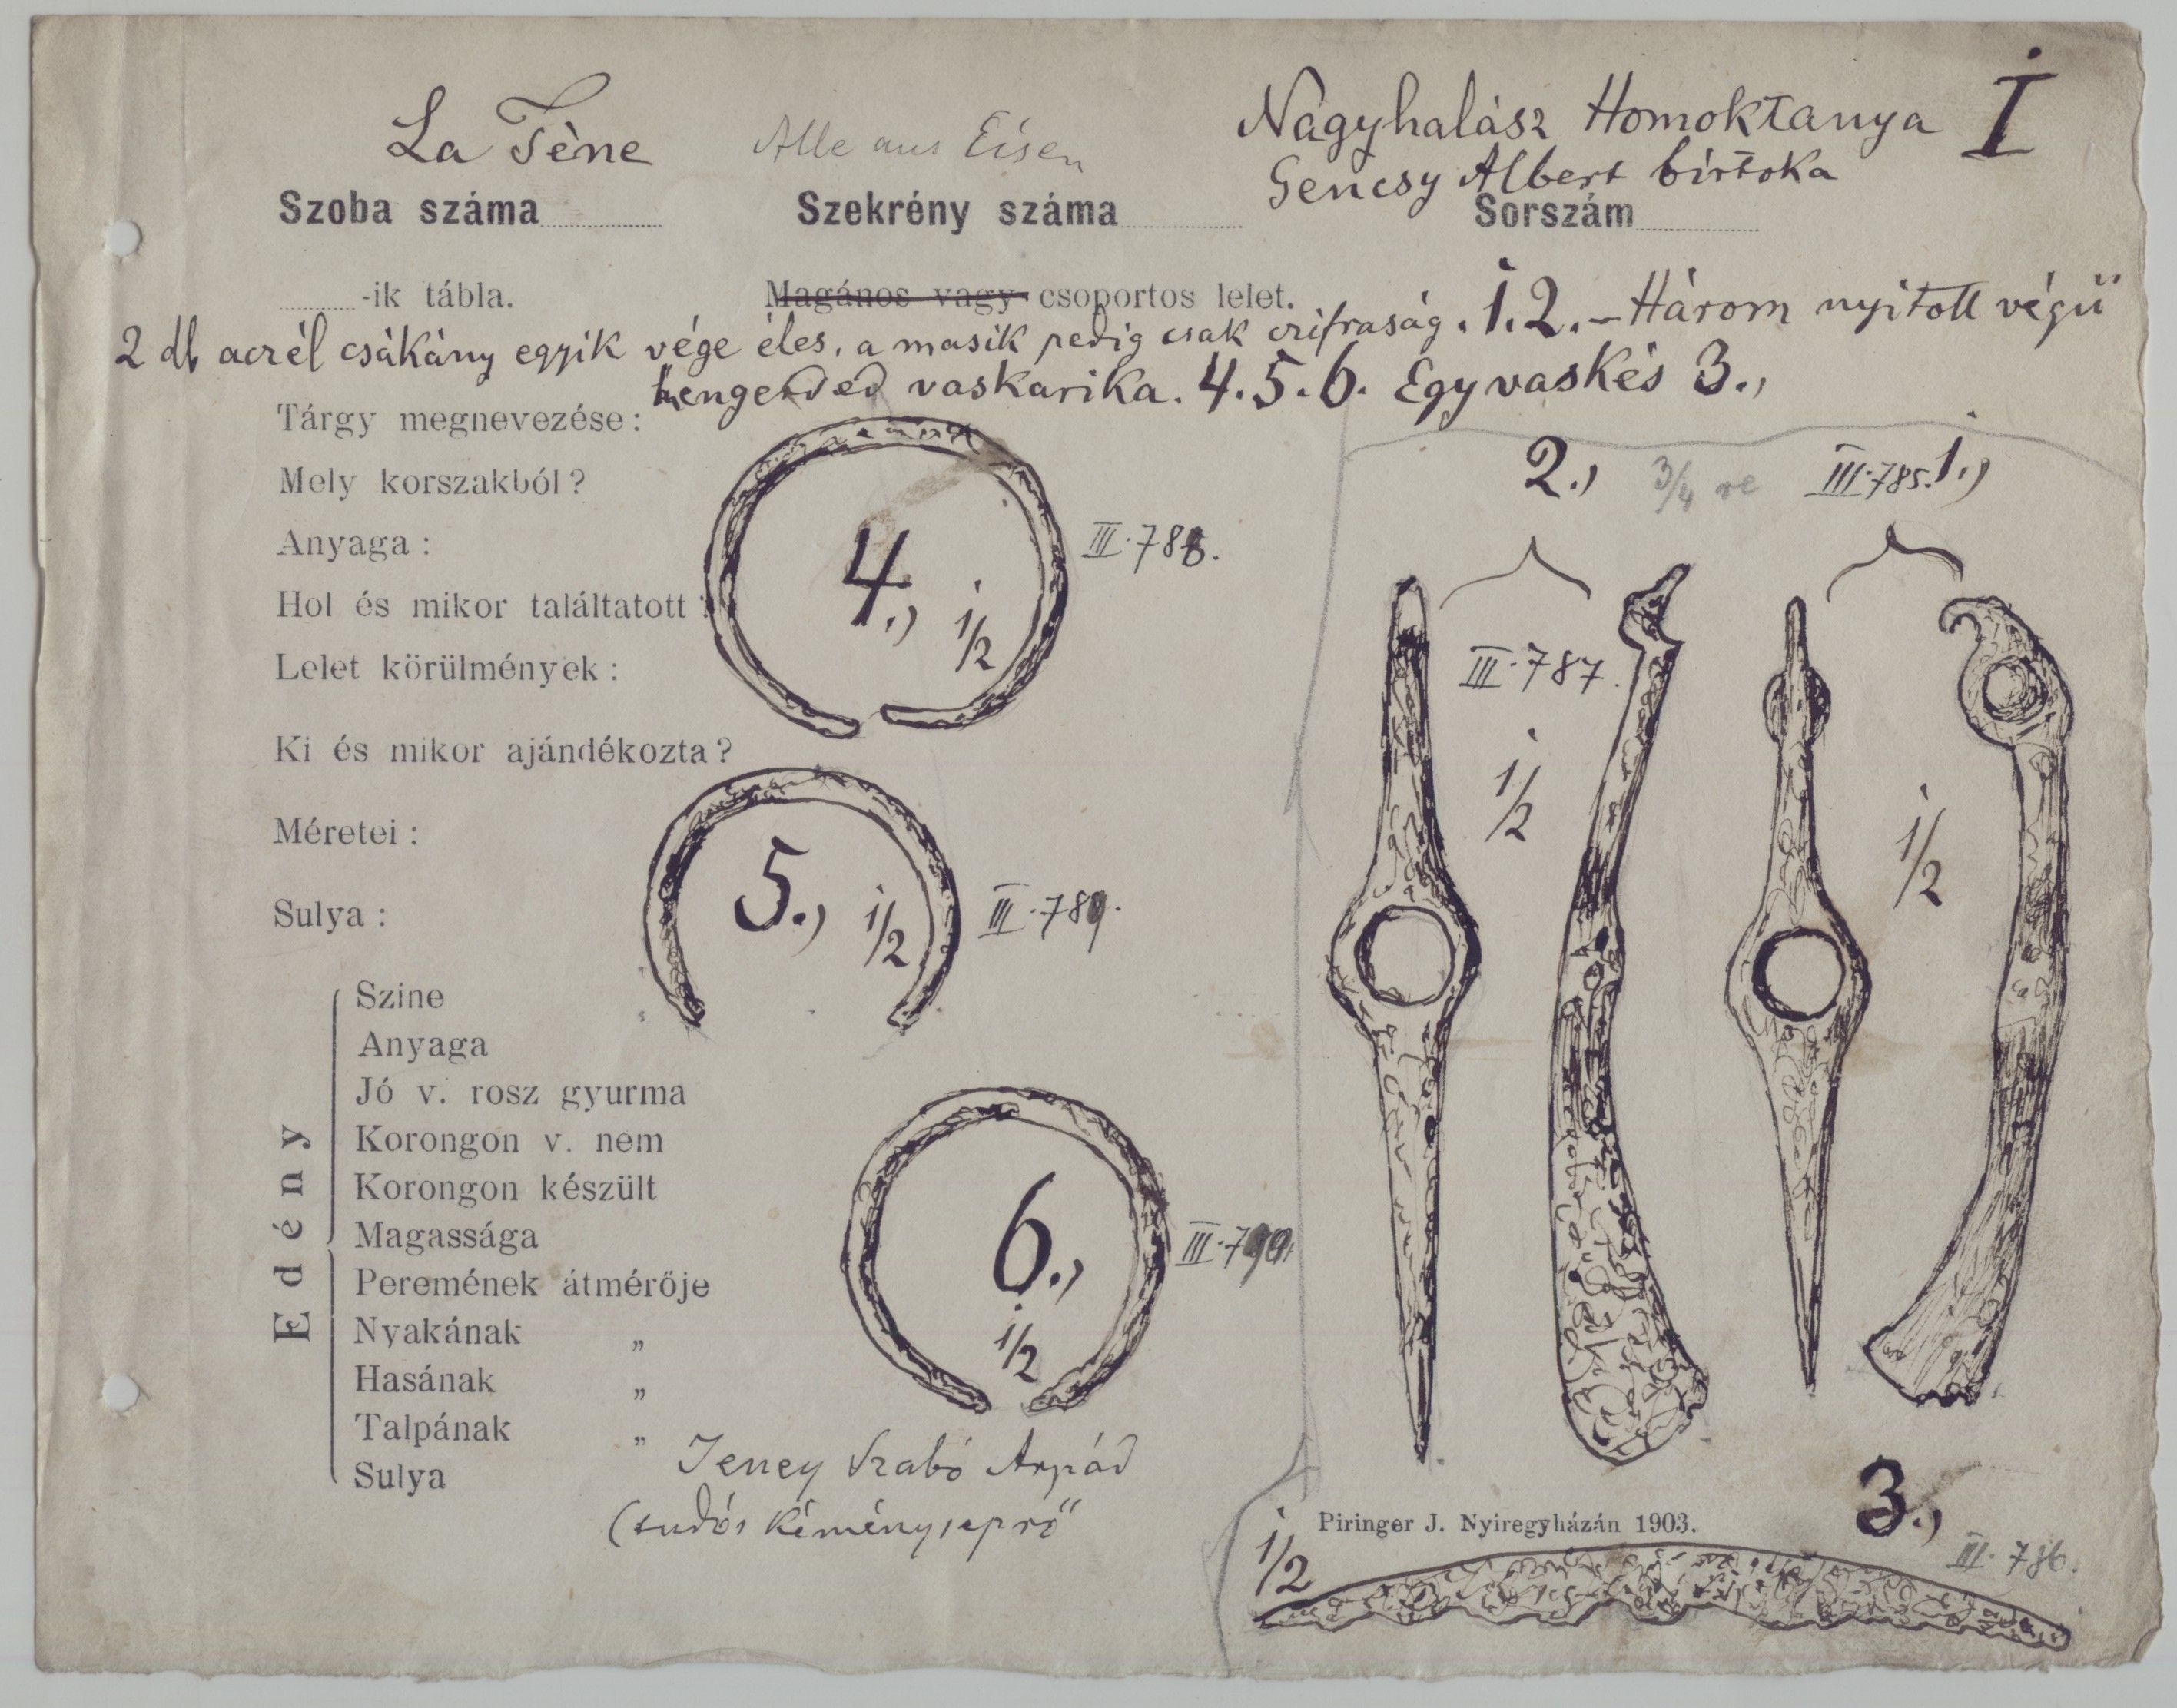 La Tène
Alle aus Eisen
Nagyhalász Homoktanya I
Gencsy Albert birtoka
Szoba száma
Szekrény száma
Sorszám
-ik tábla.
Magános vagy csoportos lelet.
2 db aczél csákány egyik vége éles, a masik pedig csak czifraság. 1.2. – Három nyitott végű
hengerded vaskarika. 4.5.6. Egy vaskés 3.,
Tárgy megnevezése:
Mely korszakból?
Anyaga:
Hol és mikor találtatott?
Lelet körülmények:
Ki és mikor ajándékozta?
Méretei:
Sulya:
4., 1/2
III.788.
5., 1/2
III.789.
6., 1/2
III.790.
2., 3/4 re III.785. 1.,
III.787.
1/2
1/2
Edény
Szine
Anyaga
Jó v. rosz gyurma
Korongon v. nem
Korongon készült
Magassága
Peremének átmérője
Nyakának „
Hasának „
Talpának „
Sulya
Jeney Szabó Árpád
(tudós kéményseprő
Piringer J. Nyiregyházán 1903.
3.,
1/2
III.786.